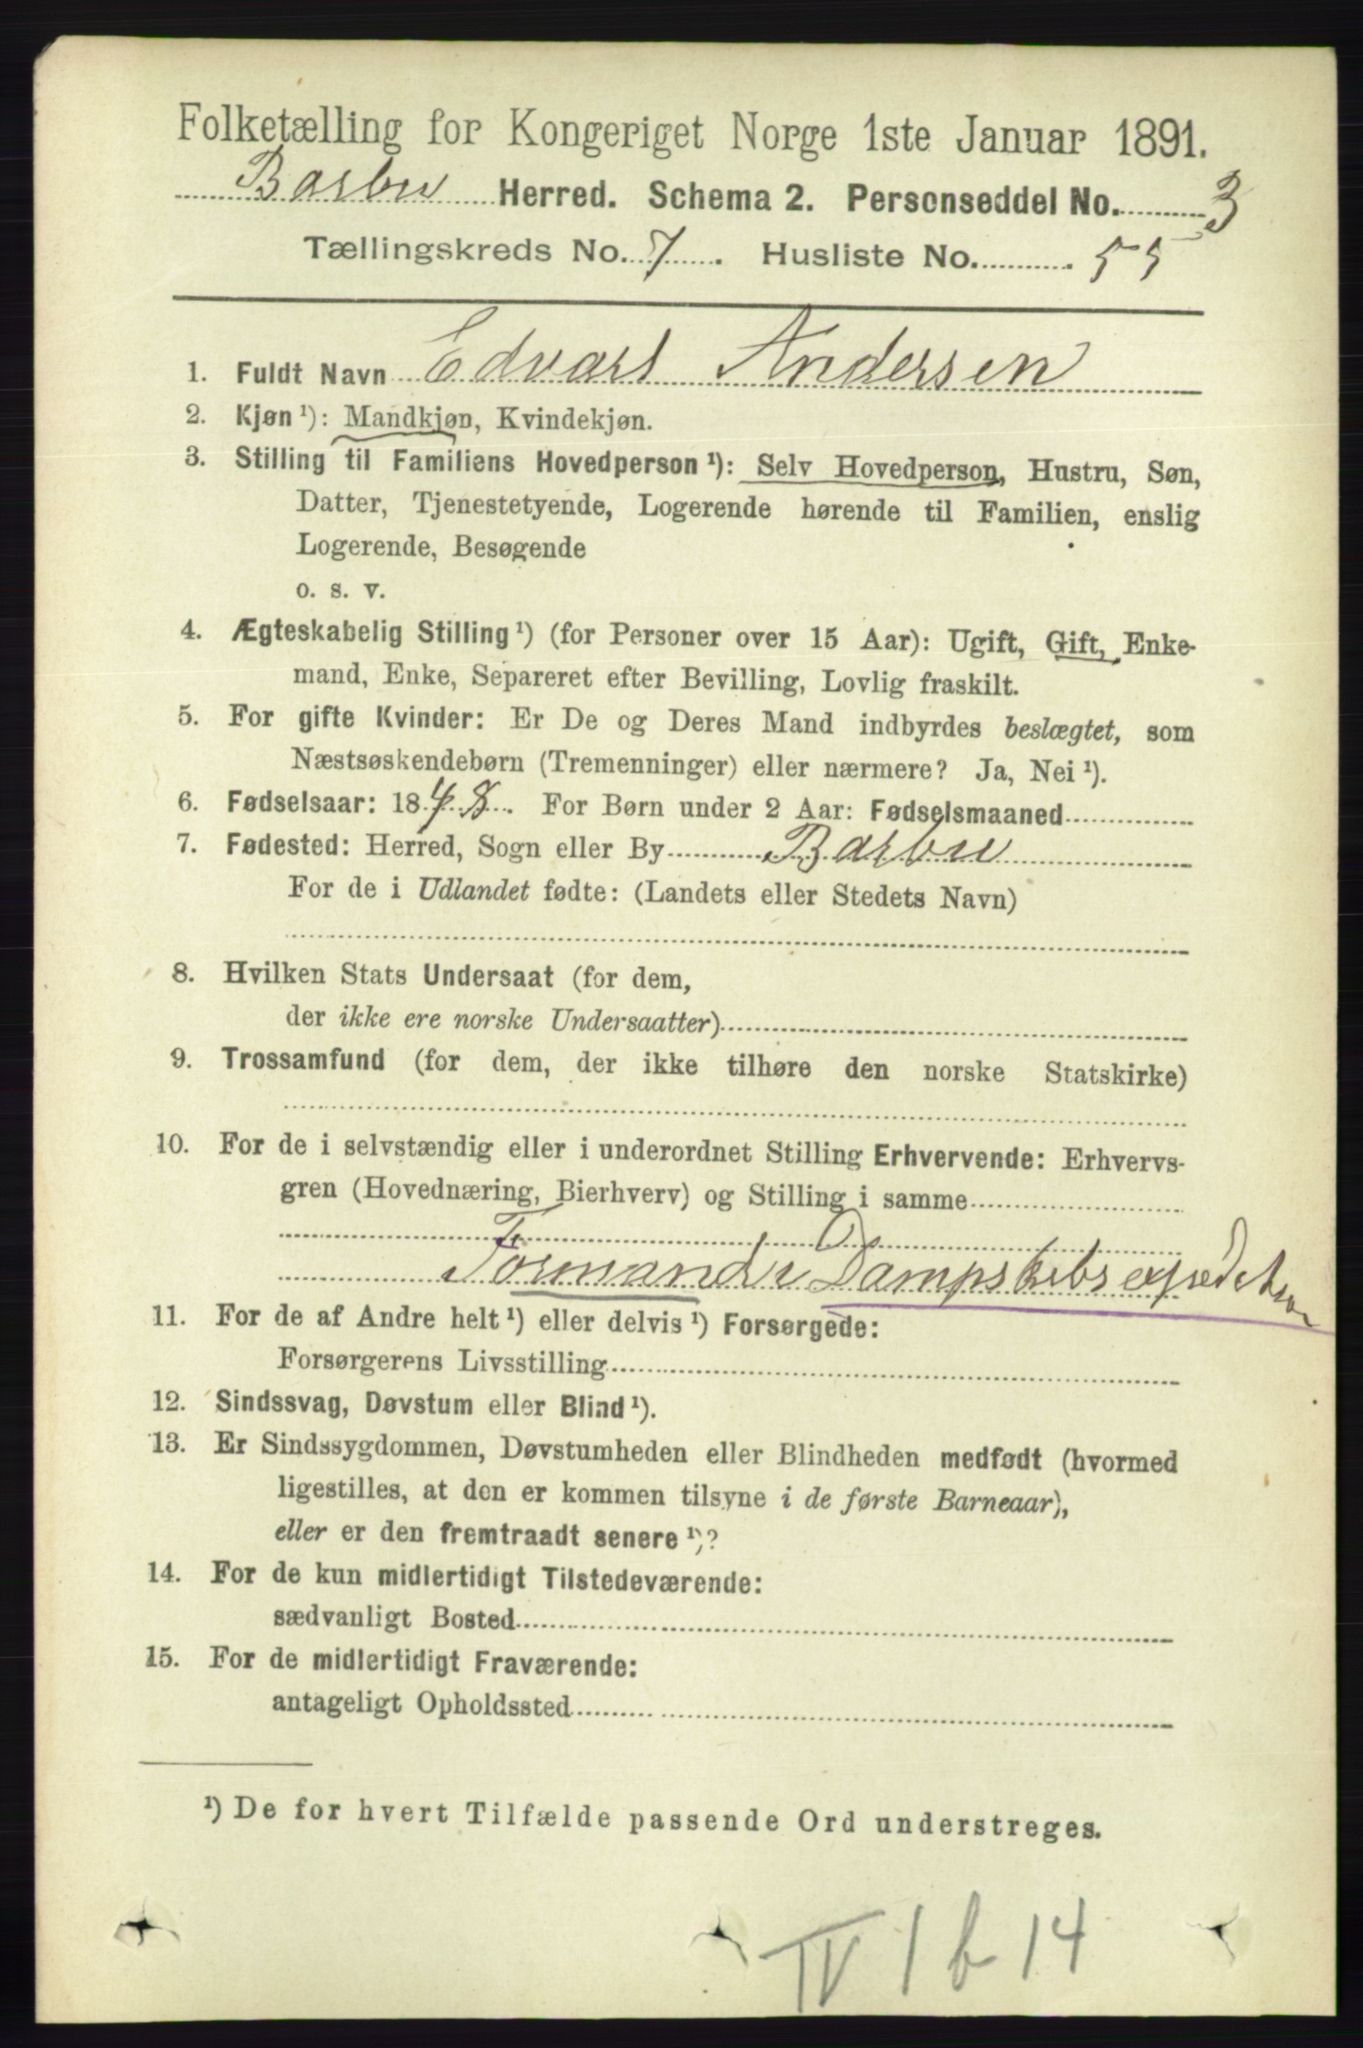 Folketælling for Kongeriget Norge 1ste Januar 1891.
Barbu Herred. Schema 2. Personseddel No. 3
Tællingskreds No. 7. Husliste No. 55
1. Fuldt Navn Edvart Andersen
2. Kjøn ¹): Mandkjøn, Kvindekjøn.
3. Stilling til Familiens Hovedperson ¹): Selv Hovedperson, Hustru, Søn,
Datter, Tjenestetyende, Logerende hørende til Familien, enslig
Logerende, Besøgende
o. s. v.
4. Ægteskabelig Stilling ¹) (for Personer over 15 Aar): Ugift, Gift, Enke-
mand, Enke, Separeret efter Bevilling, Lovlig fraskilt.
5. For gifte Kvinder: Er De og Deres Mand indbyrdes beslægtet, som
Næstsøskendebørn (Tremenninger) eller nærmere? Ja, Nei ¹).
6. Fødselsaar: 1848. For Børn under 2 Aar: Fødselsmaaned
7. Fødested: Herred, Sogn eller By Barbu
For de i Udlandet fødte: (Landets eller Stedets Navn)
8. Hvilken Stats Undersaat (for dem,
der ikke ere norske Undersaatter)
9. Trossamfund (for dem, der ikke tilhøre den norske Statskirke)
10. For de i selvstændig eller i underordnet Stilling Erhvervende: Erhvervs-
gren (Hovednæring, Bierhverv) og Stilling i samme
Formand i Dampskibsexpedition
11. For de af Andre helt ¹) eller delvis ¹) Forsørgede:
Forsørgerens Livsstilling
12. Sindssvag, Døvstum eller Blind ¹).
13. Er Sindssygdommen, Døvstumheden eller Blindheden medfødt (hvormed
ligestilles, at den er kommen tilsyne i de første Barneaar),
eller er den fremtraadt senere ¹)?
14. For de kun midlertidigt Tilstedeværende:
sædvanligt Bosted
15. For de midlertidigt Fraværende:
antageligt Opholdssted
¹) De for hvert Tilfælde passende Ord understreges.
IV 1 b 14